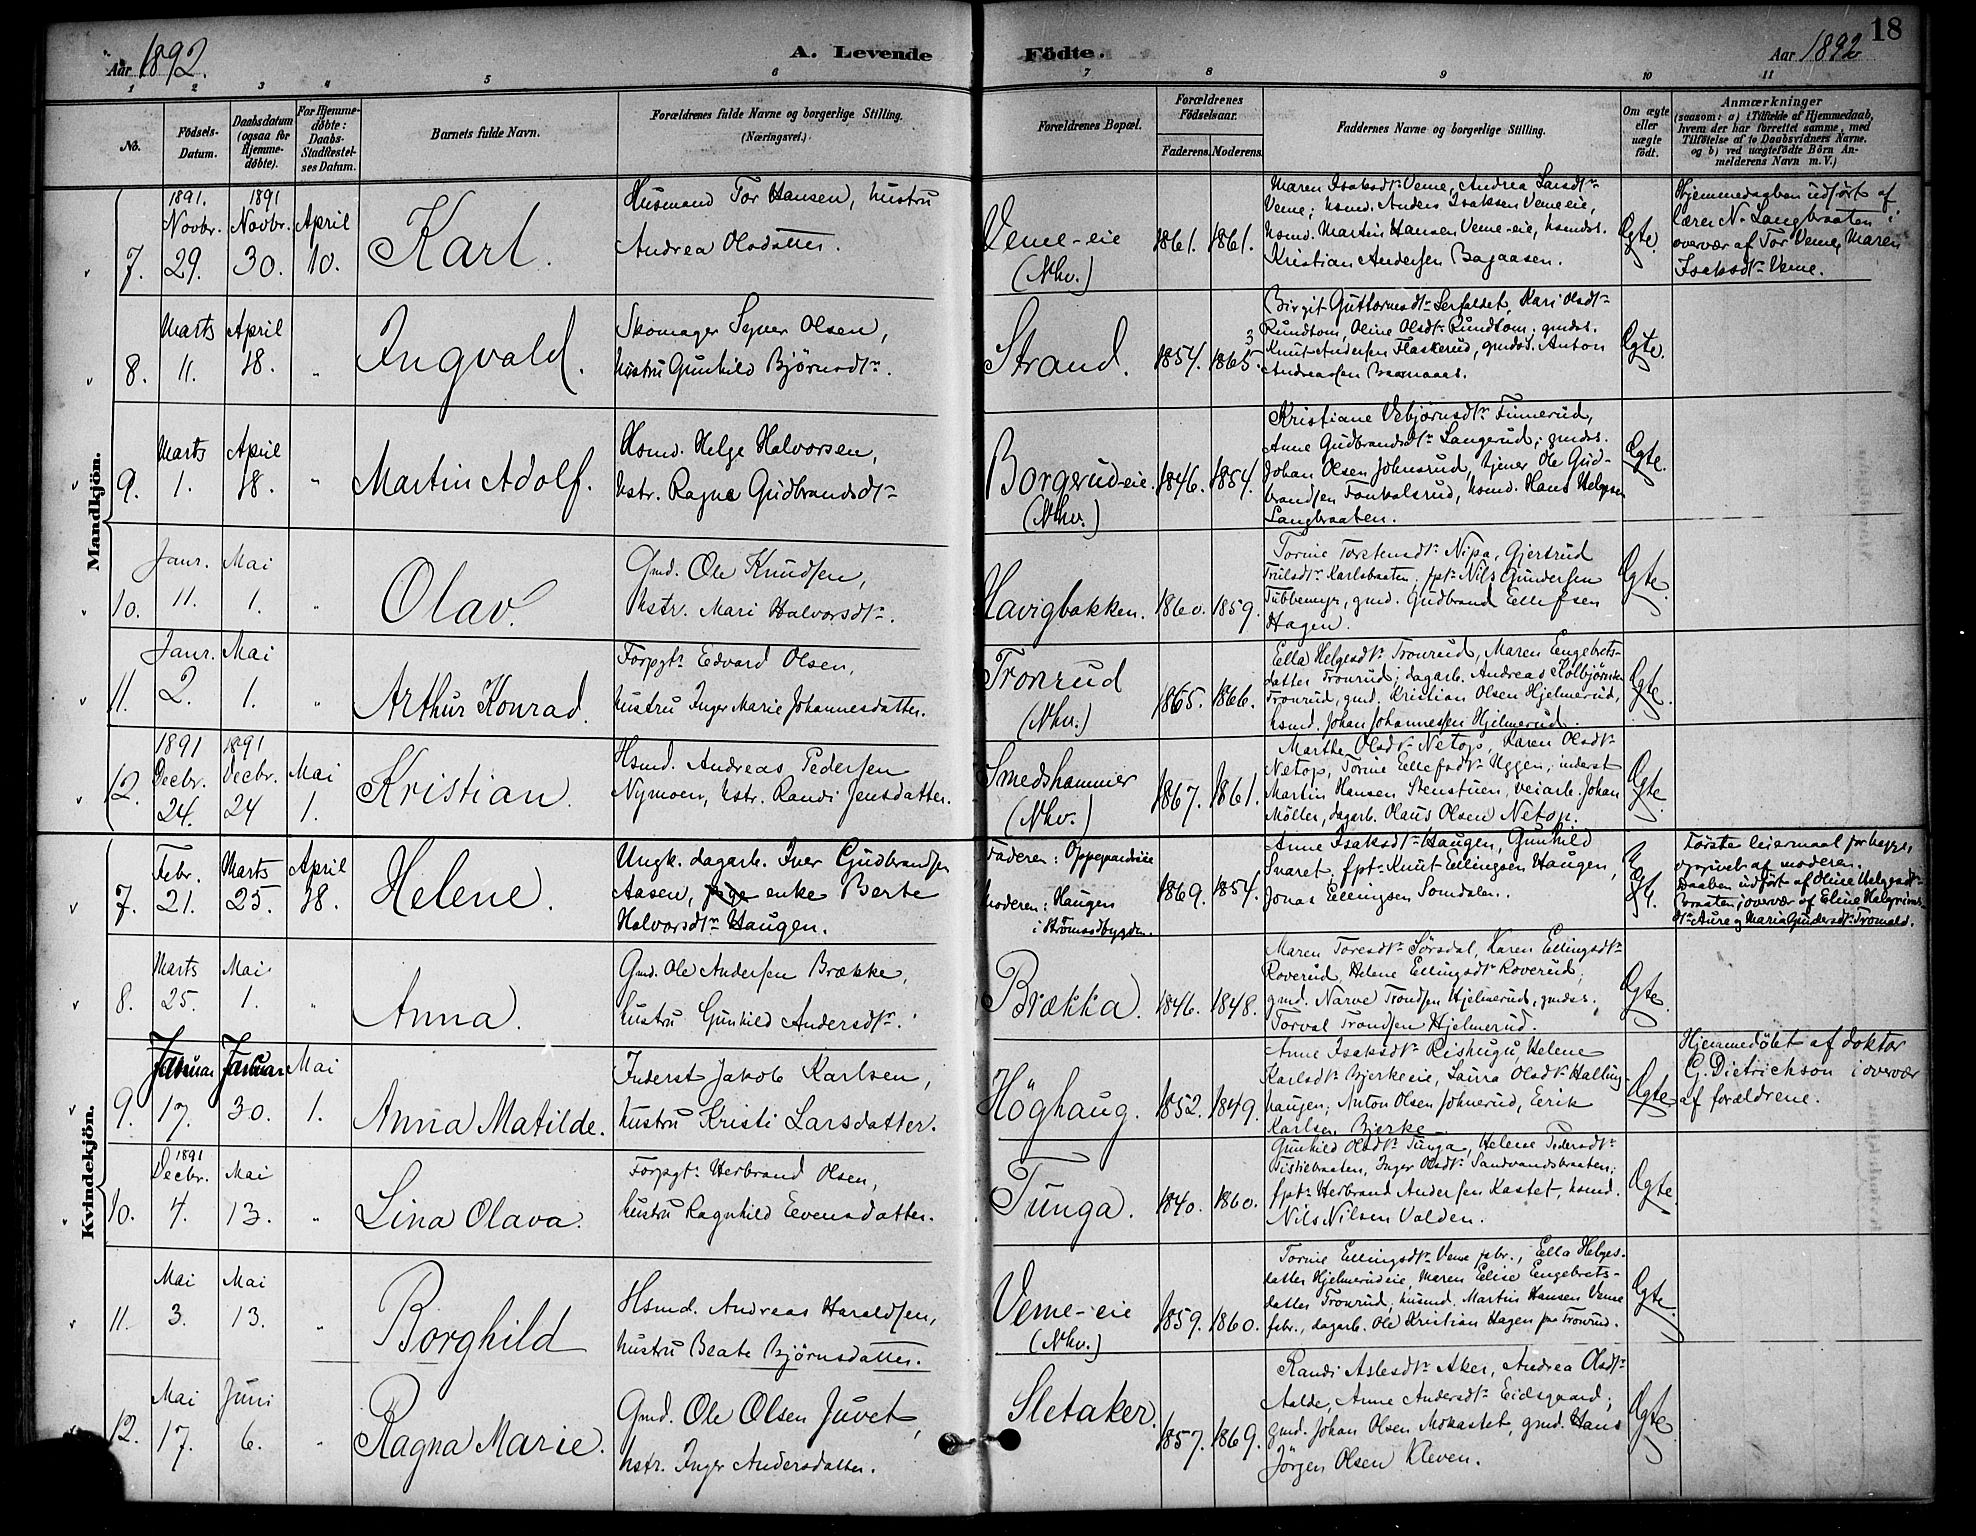 Aar 1892.
A. Levende
Födte.
Aar 1892
18
1 2 3 4 5 6 7 8 9 10 11
No.
Födsels-
Datum.
Daabsdatum
(ogsaa for
Hjemme-
döbte).
For Hjemme-
döbte:
Daabs-
Stadfæstel-
ses Datum.
Barnets fulde Navn.
Forældrenes fulde Navne og borgerlige Stilling.
(Næringsvei.)
Forældrenes Bopæl.
Forældrenes
Födselsaar.
Faderens. Moderens.
Faddernes Navne og borgerlige Stilling.
Om ægte
eller
uægte
födt.
Anmærkninger
(saasom: a) i Tilfælde af Hjemmedaab,
hvem der har forrettet samme, med
Tilföielse af to Daabsvidners Navne.
og b) ved uægtefödte Börn An-
melderens Navn m. V.)
Mandkjön.
7.
1891.
Novbr.
29.
1891
Novbr.
30.
April
10.
Karl.
Husmand Tor Hansen, hustru
Andrea Olsdatter.
Veme-eie
(Nhv.)
1861. 1861.
Maren Isaksdtr Veme, Andrea Larsdtr
Veme; husmd. Anders Isaksen Vemeeie,
husmd. Martin Hansen Veme-eie, husmds.
Kristian Andersen Bagaasen.
Ægte.
Hjemmedaaben udført af
lærer N. Langbraaten i
overvær af Tor Veme, Maren
Isaksdtr Veme.
8.
Marts
11.
April
18.
"
Ingvald.
Skomager Syver Olsen,
hustru Gunhild Bjørnsdtr.
Strand.
1854. 1865. 3
Birgit Guttormsdtr Serfaldet, Kari Olsdtr
Rundtom, Oline Olsdtr Rundtom; gmds.
Knut Andersen Flaskerud, gmds. Anton
Andreassen
Ægte.
9.
Marts
1.
April
18.
"
Martin Adolf.
Hsmd. Helge Halvorsen,
hstr. Ragne Gudbrandsdtr
Borgerud-eie.
(Nhv.)
1846. 1854.
Kristiane Vebjørnsdtr Finnerud,
Anne Gudbrandsdtr Langerud; gmds.
Johan Olsen Johnsrud, tjener Ole Gud-
brandsen Fonkalsrud, husmd. Hans Helgesen
Langbraaten.
Ægte.
10.
Janr.
11.
Mai
1.
"
Olav.
Gmd. Ole Knudsen,
hstr. Mari Halvorsdtr.
Havigbakken.
1860. 1859.
Torine Torstensdtr Nipa, Gjertrud
Trulsdtr Karlsbraaten; fptr Nils Gundersen
Tubbemyr, gmd. Gudbrand Ellefsen
Hagen.
Ægte.
11.
Janr.
2.
Mai
1.
"
Arthur Konrad.
Forpgtr Edvard Olsen,
hustru Inger Marie Johannesdatter.
Tronrud
(Nhv.)
1865. 1866.
Ella Helgesdtr Tronrud, Maren Engebrets-
datter Tronrud; dagarb. Andreas
Tronrud, gmd. Kristian Olsen Hjelmerud,
husmd. Johan Johannessen Hjelmerud.
Ægte.
12.
1891
Decbr.
24.
1891
Decbr.
24
Mai
1.
Kristian.
Hsmd. Andreas Pedersen
Nymoen, hstr. Randi Jensdatter.
Smedshammer
(Nhv.)
1867. 1861.
Marthe Olsdtr Netop, Karen Olsdtr
Netop, Torine Ellefsdtr Uggen; inderst
Martin Hansen Stenstuen, veiarb. Johan
Möller, dagarb. Olaus Olsen Netop.
Ægte
Kvindekjön.
7.
Febr.
21.
Marts
25.
April
18.
Helene.
Ungk. dagarb. Iver Gudbrandsen
Aasen, pige enke Berte
Halvorsdtr Haugen.
Faderen: Oppegaardseie
Moderen: Haugen
i Strömsodbygden.
1869. 1854.
Anne Isaksdtr Haugen, Gunhild
Svaret; fptr Knut Ellingsen Haugen,
Jonas Ellingsen Somdalen.
Første leiermaal for begge,
opgivet af moderen.
Daaben udført af Oline Helgesdtr
Braaten; overvær af Eline Helgrims-
dtr Aure og Marie Gundersdtr Tromald.
8.
Marts
25.
Mai
1.
"
Anna.
Gmd. Ole Andersen Brække,
hustru Gunhild Andersdtr.
Brække.
1846. 1848.
Maren Toresdtr Sørsdal, Karen Ellingsdtr
Roverud, Helene Ellingsdtr Roverud;
gmd. Narve Trondsen Hjelmerud, gmds.
Torval Trondsen Hjelmerud.
Ægte.
9.
Januar
17.
Januar
30.
Mai
1.
Anna Matilde.
Inderst Jakob Karlsen,
hustru Kristi Larsdatter.
Höghaug.
1852. 1849.
Anne Isaksdtr Rishugu, Helene
Karlsdtr Bjerkeeie, Laura Olsdtr Halling-
haugen; Anton Olsen Johnerud, Eerik
Karlsen Bjerke.
Ægte.
Hjemmedøbt af doktor
G. Dietrichson i overvær
af forældrene.
10.
1891
Decbr.
4.
Mai
13.
"
Lina Olava.
Forpgtr Herbrand Olsen,
hustru Ragnhild Evensdatter.
Tunga.
1840. 1860.
Gunhild Olsdtr Tunga, Helene Pedersdtr
Tistlebraaten, Inger Olsdtr Sandvandsbraaten;
fptr Herbrand Andersen Kastet, husmd.
Nils Nilsen Valden.
Ægte.
11.
Mai
3.
Mai
13.
"
Borghild
Hsmd. Andreas Haraldsen,
hustru Beate Bjørnsdatter.
Veme-eie
(Nhv.)
1859. 1860.
Torine Ellingsdtr Veme fabr., Ella Helges-
datter Hjelmerudeie, Maren Elise Engebrets-
datter Tronrud; husmd. Martin Hansen Veme
fabr., dagarb. Ole Kristian Hagen paa Tronrud.
Ægte.
12.
Mai
17.
Juni
6.
"
Ragna Marie.
Gmd. Ole Olsen Juvet,
hstr. Inger Andersdatter.
Sletaker.
1857. 1869.
Randi Aslesdtr Aker, Andrea Olsdtr
Aalde, Anne Andersdtr Eidsgaard;
gmd. Johan Olsen Mokastet, gmd. Hans
Jörgen Olsen Kleven.
Ægte.